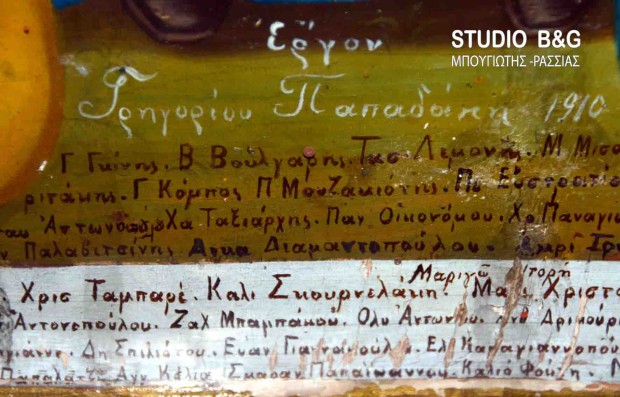 STUDIO B&G
ΜΠΟΥΓΙΩΤΗΣ -ΡΑΣΣΙΑΣ
Ἔργον
Γρηγορίου Παπαδάκη 1910
Γ Γκίνης. Β Βούλγαρης. Τασ. Λεμονῆς. Μ Μισα
ριτάκης. Γ Κόμπος Π Μουζακιότης. Πα Εὐστρατίο
Ἀντωνοπο Χα Ταξιάρχης. Παν Οἰκονόμου. Χρ Παναγιο
Παλαβιτσίνης Διαμαντοπούλου.
Μαριγῶ
Χρισ Ταμπαρέ. Καλι Σκουρνελάκη. Χριστο
Ἀντονοπούλου. Ζαχ Μπαμπάκού. Ολυ Ἀντωνίου Δρικουρι
αγιάννι. Δη Σπιλιότου. Εὐαν Γιανοπούλου. Ελ Καραγιαννοπού
Αγν Κελια Σμαραν Παπαϊωαννου. Καλιο